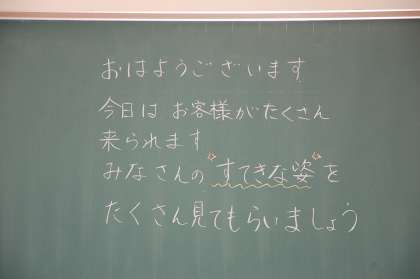 おはようございます
今日は お客様がたくさん
来られます
みなさんの すてきな姿 を
たくさん見てもらいましょう